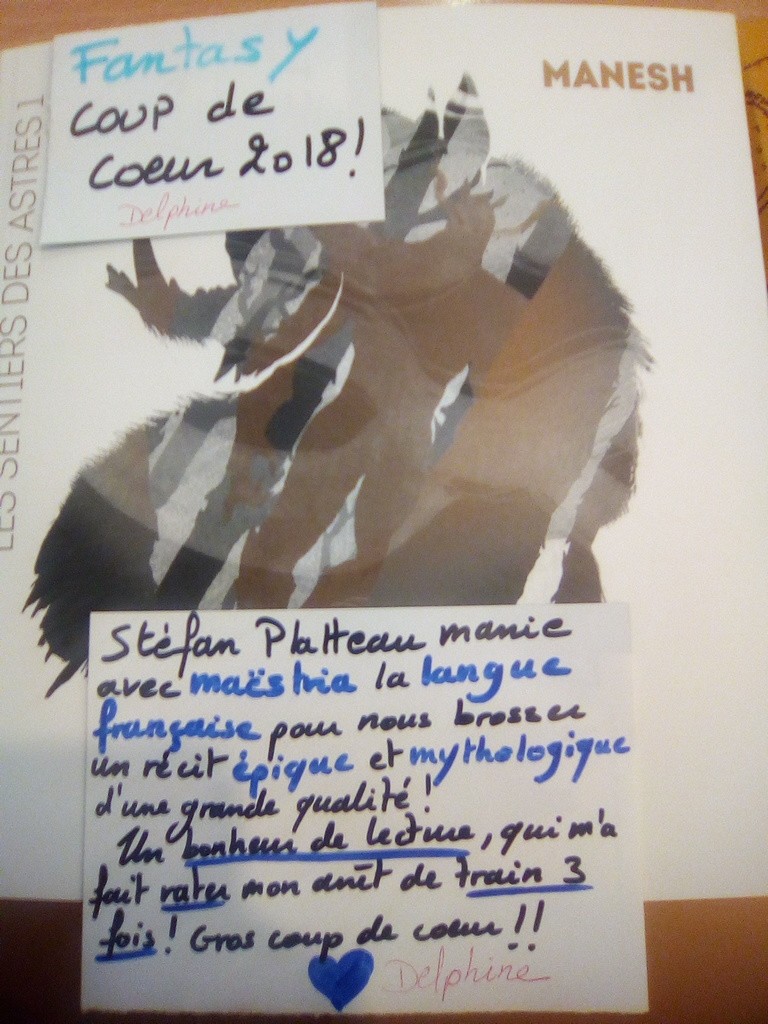 Fantasy
coup de
coeur 2018!
Delphine
MANESH
LES SENTIERS DES ASTRES 1
Stéfan Platteau manie
avec maëstria la langue
française pour nous brosser
un récit épique et mythologique
d'une grande qualité!
Un bonheur de lecture, qui m'a
fait rater mon arrêt de train 3
fois! Gros coup de coeur!!
Delphine